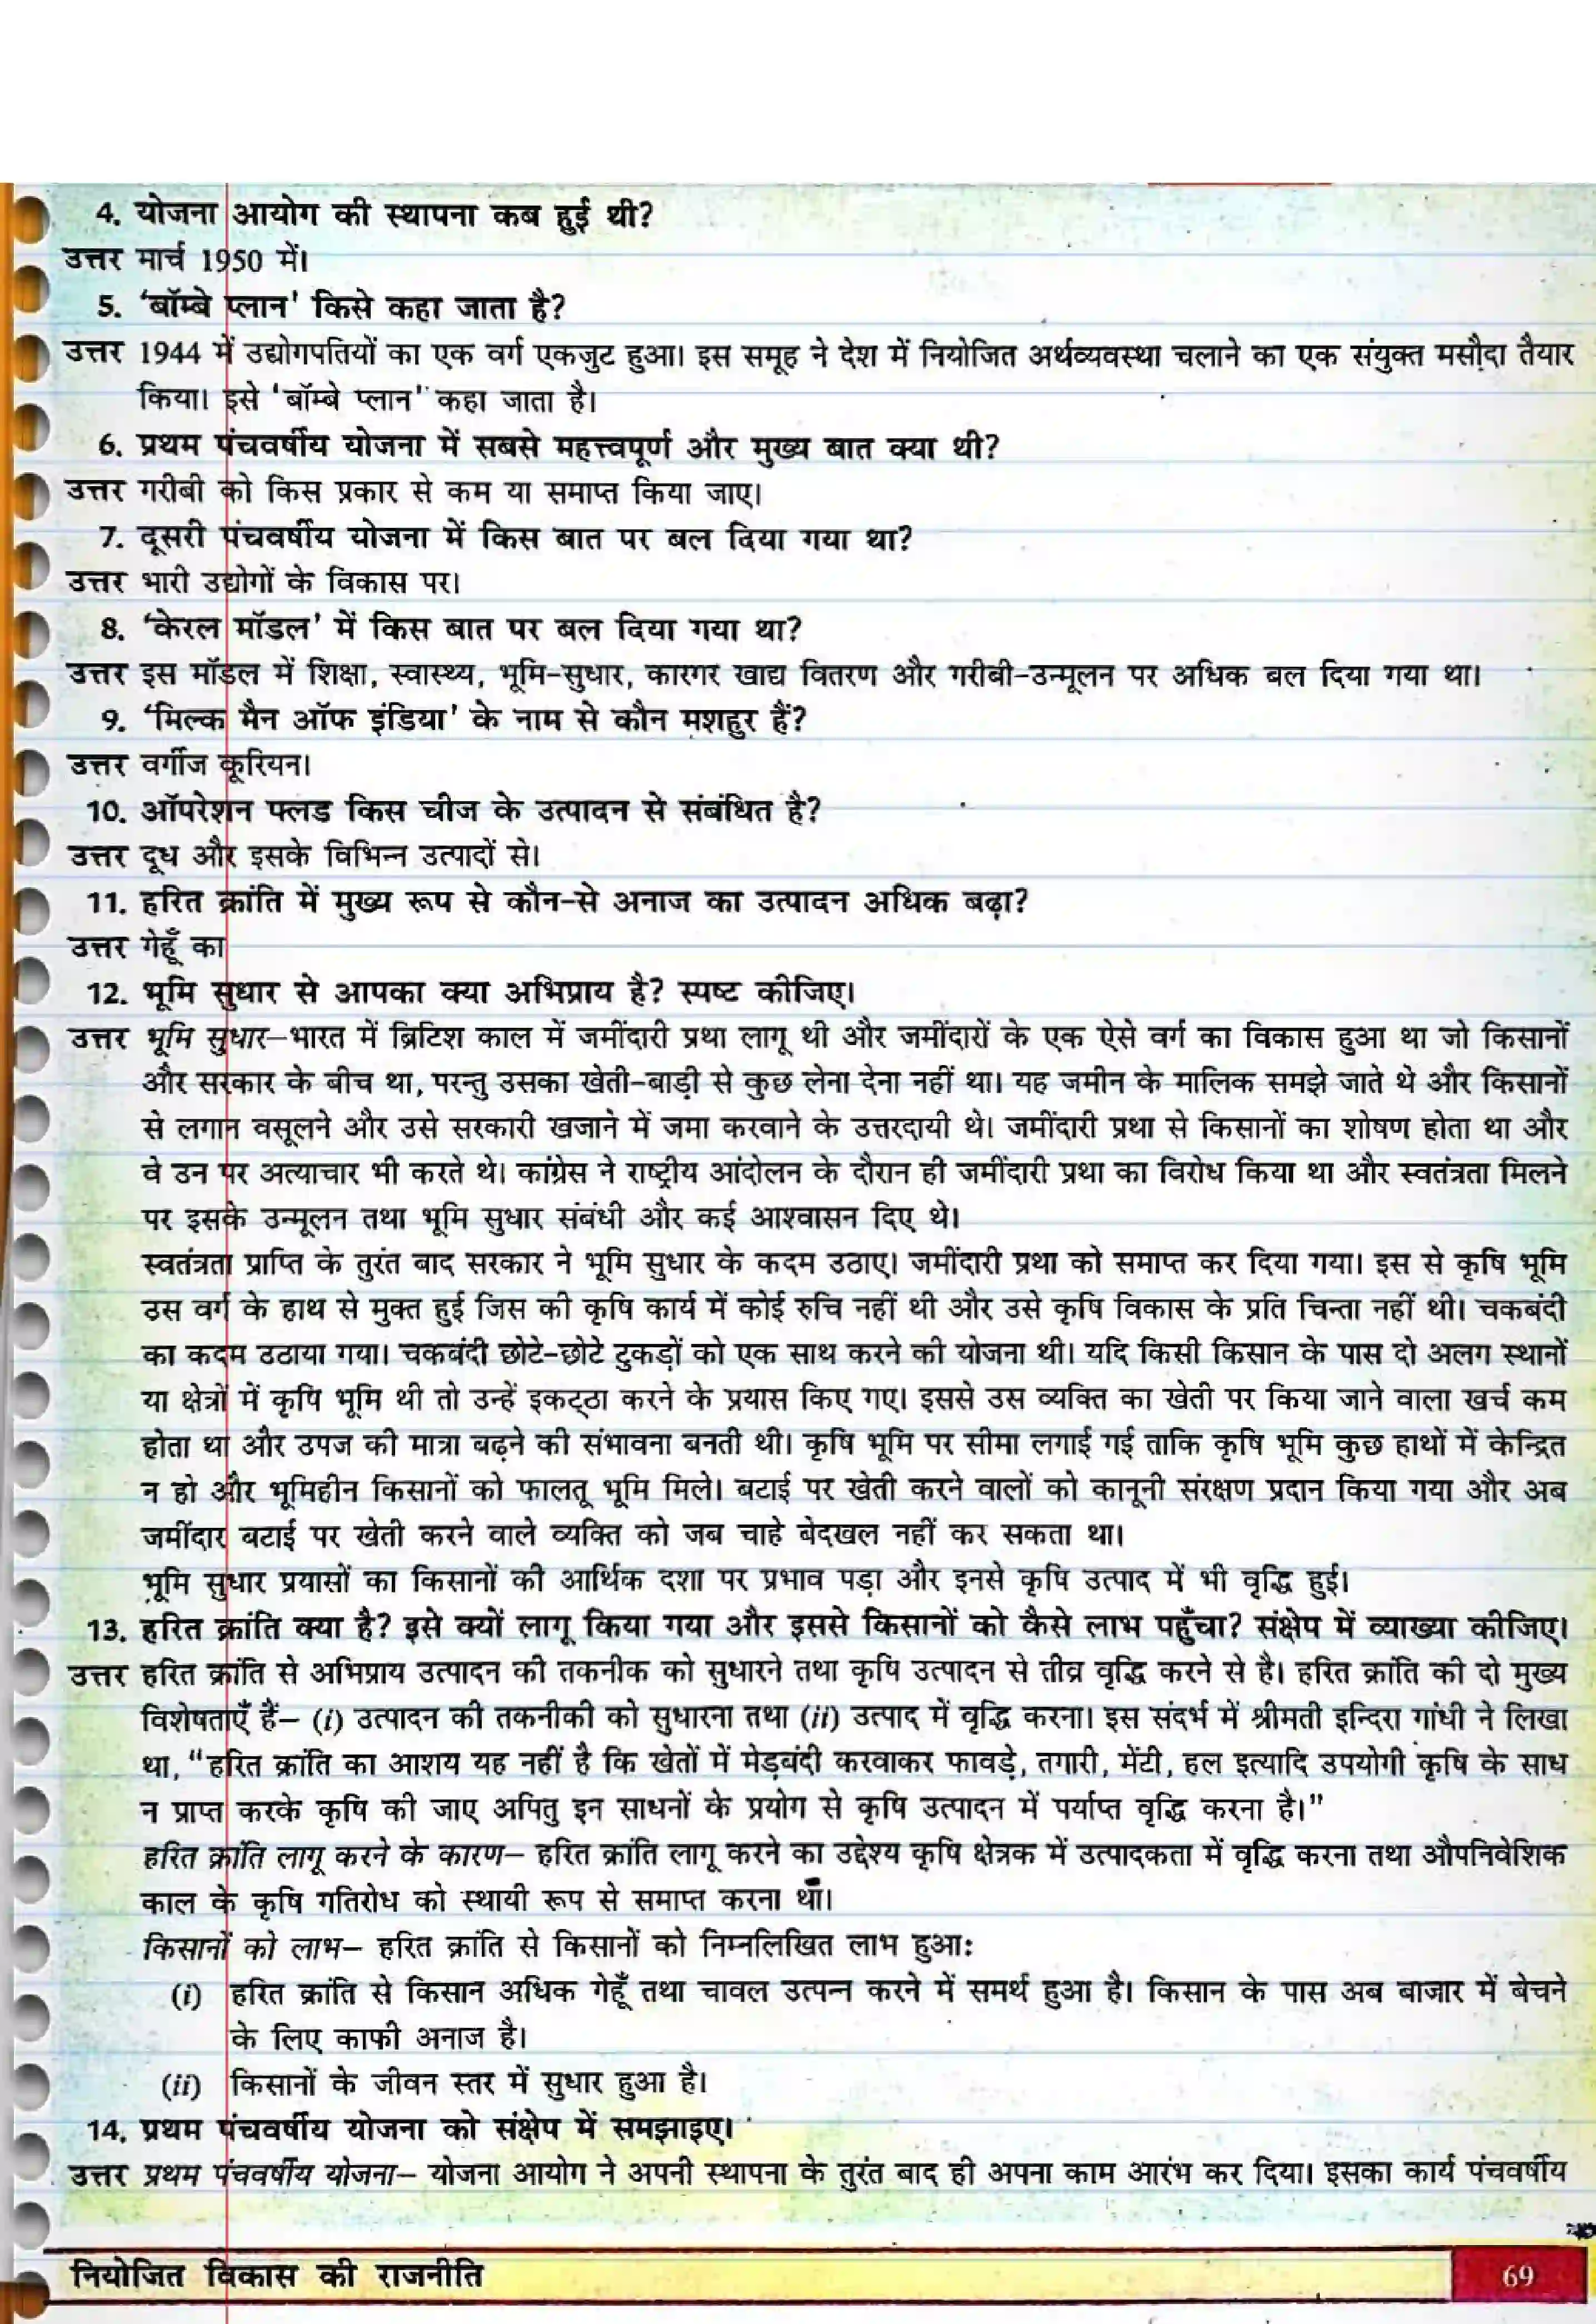 4. योजना आयोग की स्थापना कब हुई थी?
उत्तर मार्च 1950 में।
5. ‘बॉम्बे प्लान' किसे कहा जाता है?
उत्तर 1944 में उद्योगपतियों का एक वर्ग एकजुट हुआ। इस समूह ने देश में नियोजित अर्थव्यवस्था चलाने का एक संयुक्त मसौदा तैयार
किया। इसे 'बॉम्बे प्लान' कहा जाता है।
6. प्रथम पंचवर्षीय योजना में सबसे महत्त्वपूर्ण और मुख्य बात क्या थी?
उत्तर गरीबी को किस प्रकार से कम या समाप्त किया जाए।
7. दूसरी पंचवर्षीय योजना में किस बात पर बल दिया गया था?
उत्तर भारी उद्योगों के विकास पर।
8. ‘केरल मॉडल’ में किस बात पर बल दिया गया था?
उत्तर इस मॉडल में शिक्षा, स्वास्थ्य, भूमि-सुधार, कारगर खाद्य वितरण और गरीबी-उन्मूलन पर अधिक बल दिया गया था।
9. ‘मिल्क मैन ऑफ इंडिया' के नाम से कौन मशहुर हैं?
उत्तर वर्गीज कूरियन।
10. ऑपरेशन फ्लड किस चीज के उत्पादन से संबंधित है?
उत्तर दूध और इसके विभिन्न उत्पादों से।
11. हरित क्रांति में मुख्य रूप से कौन-से अनाज का उत्पादन अधिक बढ़ा?
उत्तर गेहूँ का
12. भूमि सुधार से आपका क्या अभिप्राय है? स्पष्ट कीजिए।
उत्तर भूमि सुधार–भारत में ब्रिटिश काल में जमींदारी प्रथा लागू थी और जमींदारों के एक ऐसे वर्ग का विकास हुआ था जो किसानों
और सरकार के बीच था, परन्तु उसका खेती-बाड़ी से कुछ लेना देना नहीं था। यह जमीन के मालिक समझे जाते थे और किसानों
से लगान वसूलने और उसे सरकारी खजाने में जमा करवाने के उत्तरदायी थे। जमींदारी प्रथा से किसानों का शोषण होता था और
वे उन पर अत्याचार भी करते थे। कांग्रेस ने राष्ट्रीय आंदोलन के दौरान ही जमींदारी प्रथा का विरोध किया था और स्वतंत्रता मिलने
पर इसके उन्मूलन तथा भूमि सुधार संबंधी और कई आश्वासन दिए थे।
स्वतंत्रता प्राप्ति के तुरंत बाद सरकार ने भूमि सुधार के कदम उठाए। जमींदारी प्रथा को समाप्त कर दिया गया। इस से कृषि भूमि
उस वर्ग के हाथ से मुक्त हुई जिस की कृषि कार्य में कोई रुचि नहीं थी और उसे कृषि विकास के प्रति चिन्ता नहीं थी। चकबंदी
का कदम उठाया गया। चकबंदी छोटे-छोटे टुकड़ों को एक साथ करने की योजना थी। यदि किसी किसान के पास दो अलग स्थानों
या क्षेत्रों में कृषि भूमि थी तो उन्हें इकट्ठा करने के प्रयास किए गए। इससे उस व्यक्ति का खेती पर किया जाने वाला खर्च कम
होता था और उपज की मात्रा बढ़ने की संभावना बनती थी। कृषि भूमि पर सीमा लगाई गई ताकि कृषि भूमि कुछ हाथों में केन्द्रित
न हो और भूमिहीन किसानों को फालतू भूमि मिले। बटाई पर खेती करने वालों को कानूनी संरक्षण प्रदान किया गया और अब
जमींदार बटाई पर खेती करने वाले व्यक्ति को जब चाहे बेदखल नहीं कर सकता था।
भूमि सुधार प्रयासों का किसानों की आर्थिक दशा पर प्रभाव पड़ा और इनसे कृषि उत्पाद में भी वृद्धि हुई।
13. हरित क्रांति क्या है? इसे क्यों लागू किया गया और इससे किसानों को कैसे लाभ पहुँचा? संक्षेप में व्याख्या कीजिए।
उत्तर हरित क्रांति से अभिप्राय उत्पादन की तकनीक को सुधारने तथा कृषि उत्पादन से तीव्र वृद्धि करने से है। हरित क्रांति की दो मुख्य
विशेषताएँ हैं– (i) उत्पादन की तकनीकी को सुधारना तथा (ii) उत्पाद में वृद्धि करना। इस संदर्भ में श्रीमती इन्दिरा गांधी ने लिखा
था, “हरित क्रांति का आशय यह नहीं है कि खेतों में मेड़बंदी करवाकर फावड़े, तगारी, मेंटी, हल इत्यादि उपयोगी कृषि के साध
न प्राप्त करके कृषि की जाए अपितु इन साधनों के प्रयोग से कृषि उत्पादन में पर्याप्त वृद्धि करना है।”
हरित क्रांति लागू करने के कारण– हरित क्रांति लागू करने का उद्देश्य कृषि क्षेत्रक में उत्पादकता में वृद्धि करना तथा औपनिवेशिक
काल के कृषि गतिरोध को स्थायी रूप से समाप्त करना था।
किसानों को लाभ– हरित क्रांति से किसानों को निम्नलिखित लाभ हुआ:
(i) हरित क्रांति से किसान अधिक गेहूँ तथा चावल उत्पन्न करने में समर्थ हुआ है। किसान के पास अब बाजार में बेचने
के लिए काफी अनाज है।
(ii) किसानों के जीवन स्तर में सुधार हुआ है।
14. प्रथम पंचवर्षीय योजना को संक्षेप में समझाइए।
उत्तर प्रथम पंचवर्षीय योजना– योजना आयोग ने अपनी स्थापना के तुरंत बाद ही अपना काम आरंभ कर दिया। इसका कार्य पंचवर्षीय
नियोजित विकास की राजनीति
69